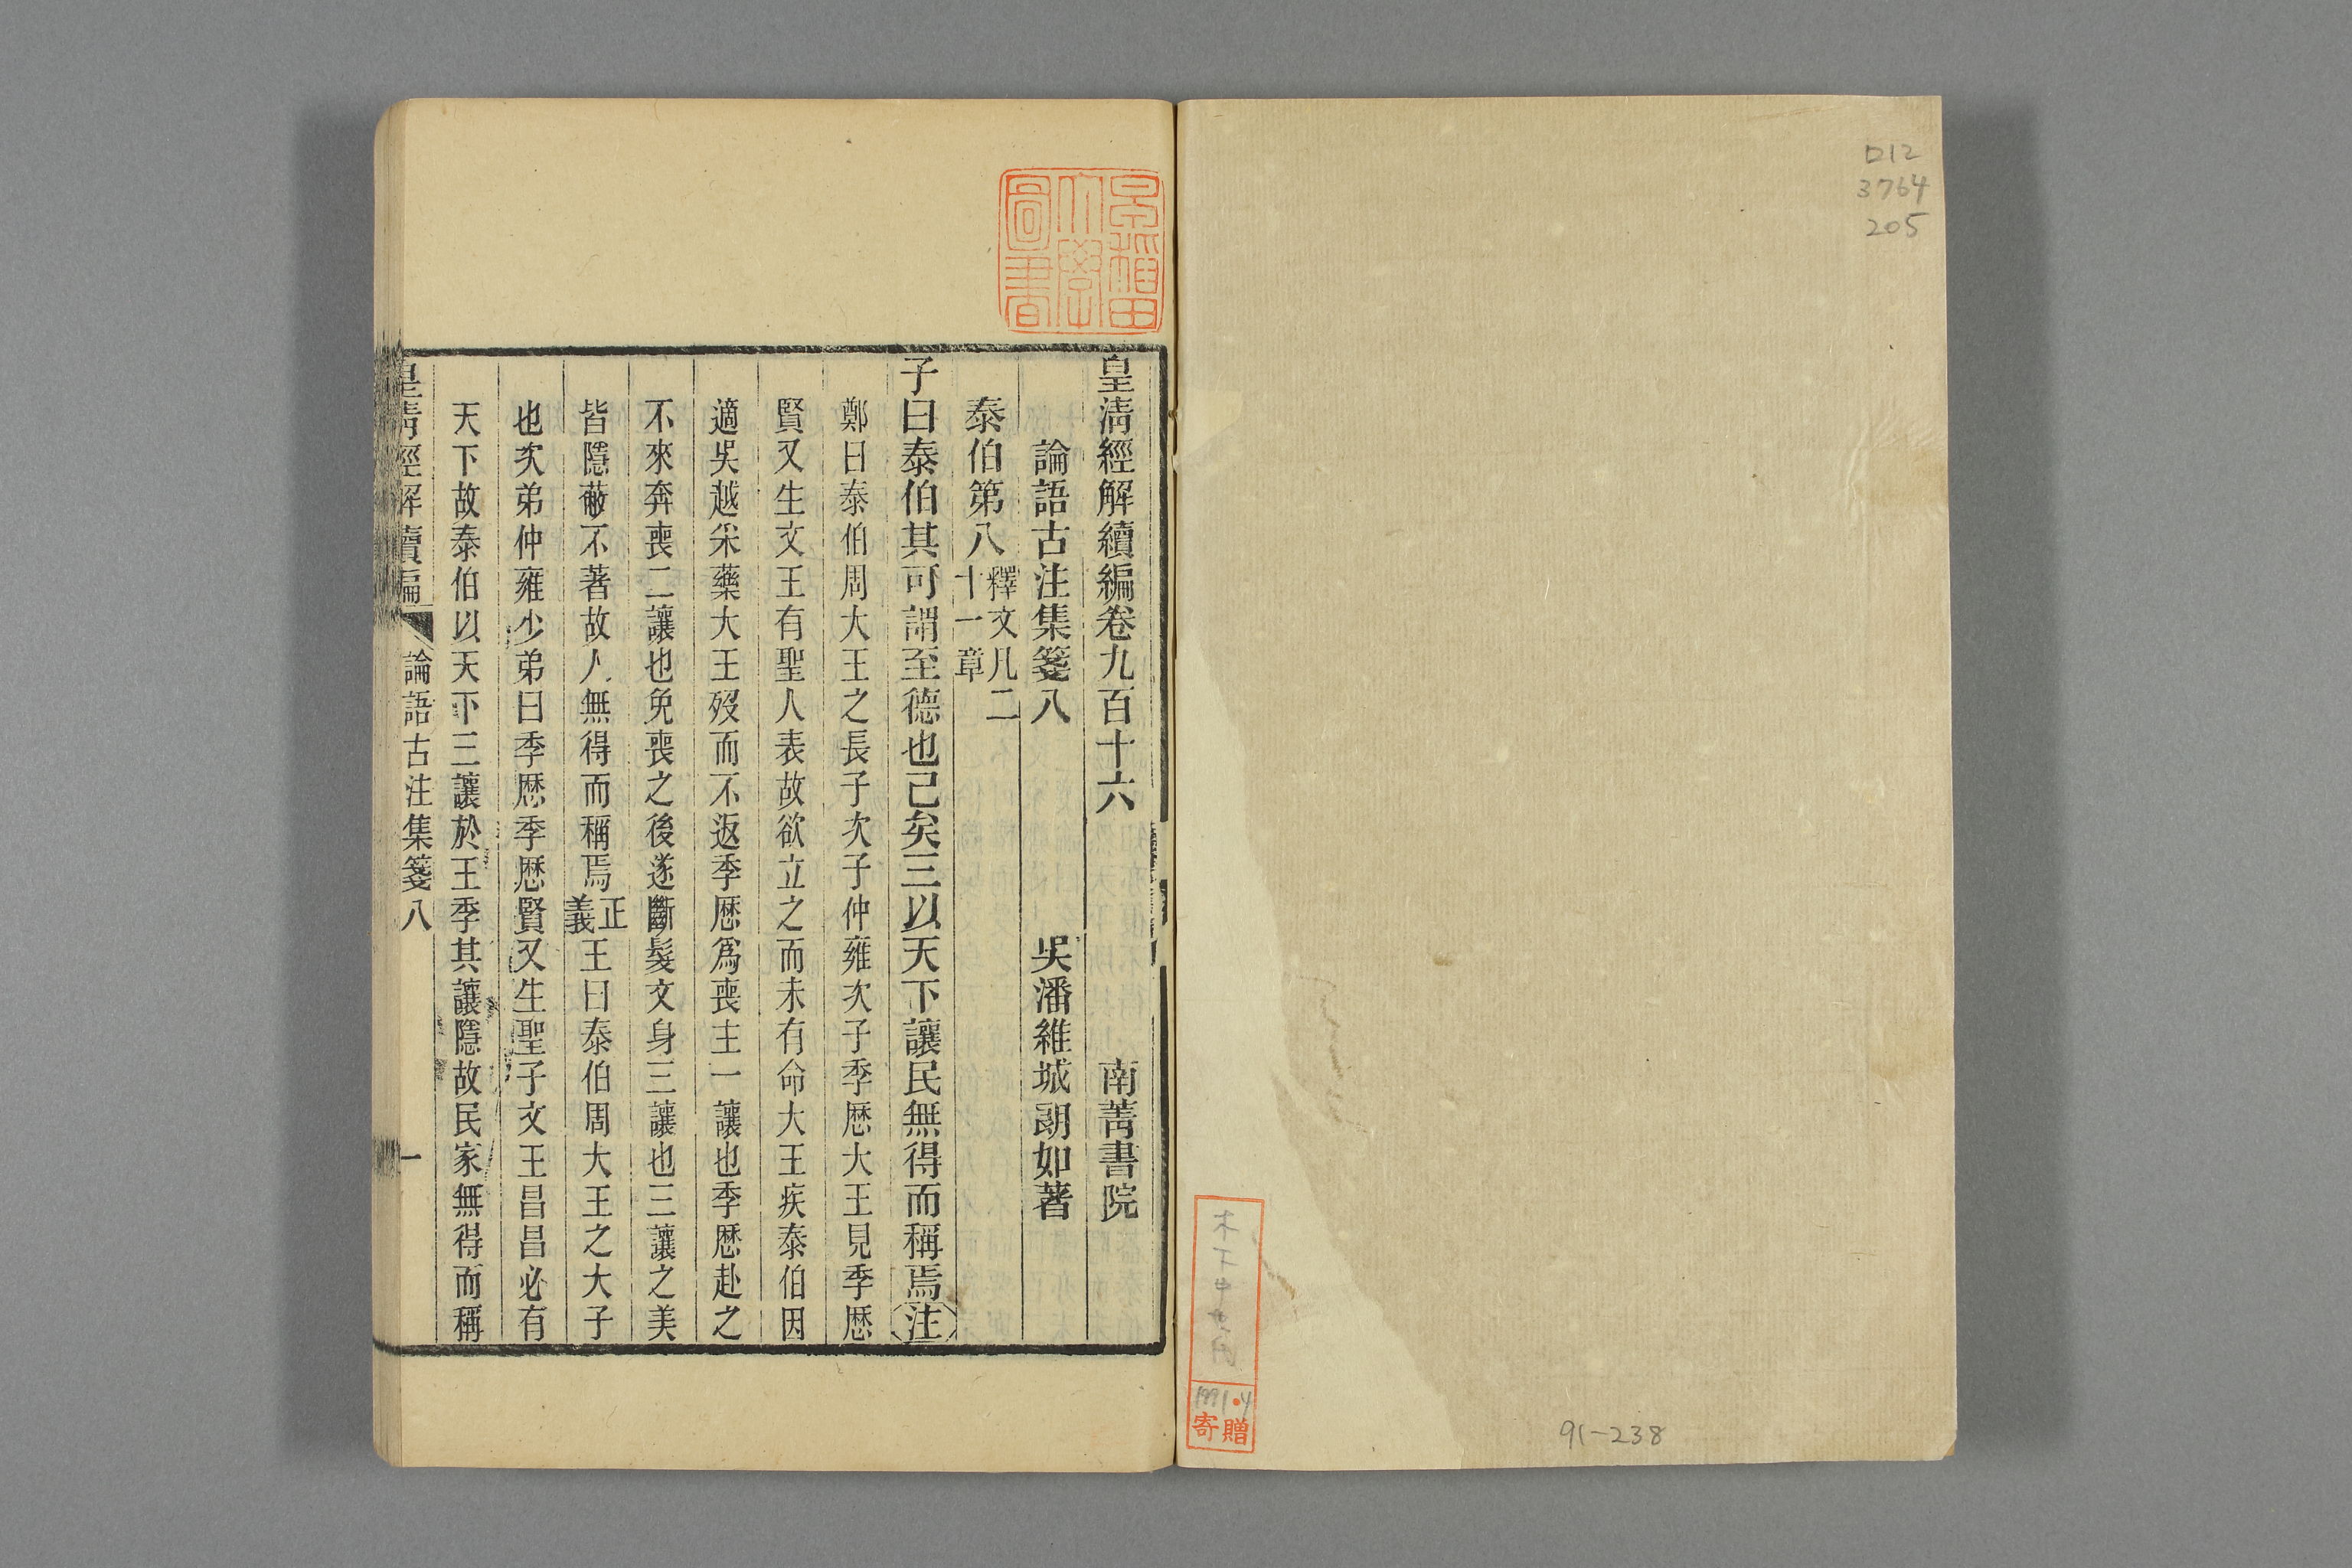 ロ12
3764
205
91-238
1991・4
寄贈
早稲田
大學
圖書
皇清經解續編卷九百十六 南菁書院
論語古注集箋八 吳潘維城朗如著
泰伯第八 釋文凡二十一章
子曰泰伯其可謂至德也已矣三以天下讓民無得而稱焉注
鄭曰泰伯周大王之長子次子仲雍次子季歷大王見季歷
賢又生文王有聖人表故欲立之而未有命大王疾泰伯因
適吳越采藥大王歿而不返季歷爲喪主一讓也季歷赴之
不來奔喪二讓也免喪之後遂斷髮文身三讓也三讓之美
皆隱蔽不著故人無得而稱焉正義王曰泰伯周大王之大子
也次弟仲雍少弟曰季歷季歷賢又生聖子文王昌昌必有
天下故泰伯以天下三讓於王季其讓隱故民家無得而稱
皇清經解續編 論語古注集箋八 一